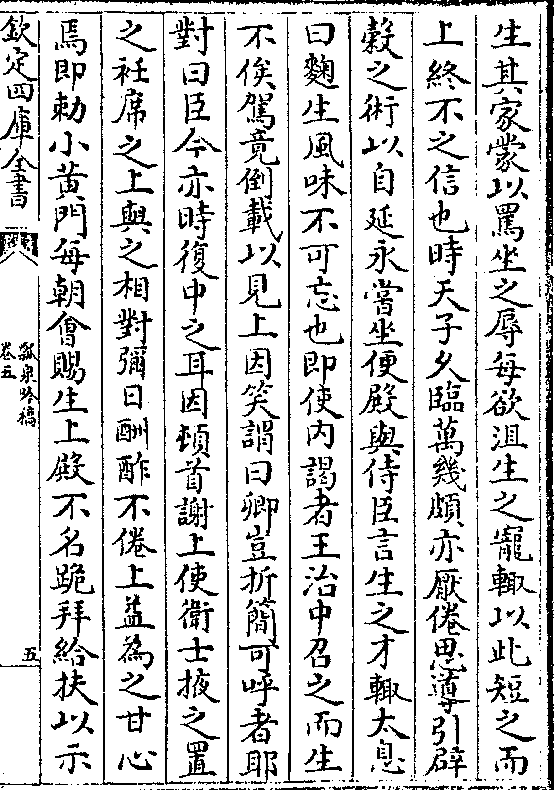 生其家蒙以罵坐之辱每欲沮生之寵輙以此短之而
上終不之信也時天子久臨萬幾頗亦厭倦思導引辟
穀之術以自延永嘗坐便殿與侍臣言生之才輙太息
曰麴生風味不可忘也即使内謁者王治中召之而生
不俟駕竟倒載以見上因笑謂曰卿豈折簡可呼者耶
對曰臣今亦時復中之耳因頓首謝上使衛士掖之置
之袵席之上與之相對彌日酬酢不倦上益為之甘心
焉即勅小黄門每朝會賜生上殿不名跪拜給扶以示
欽定四庫全書
瓢泉吟稿
卷五
五